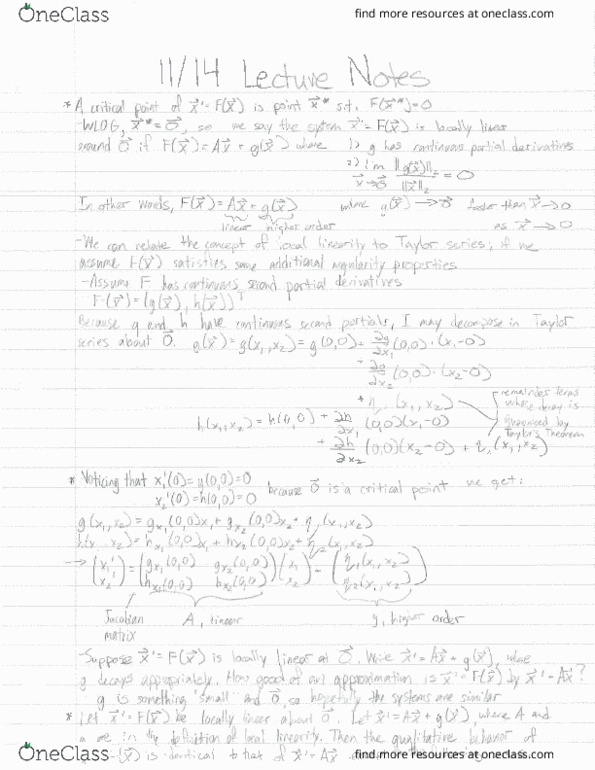 OneClass
find more resources at oneclass.com
11/14 Lecture Notes
* A critical point of x⃗'=F(x⃗) is point x⃗* s.t. F(x⃗*)=0
-WLOG, x⃗*=0⃗, so we say the system x⃗'=F(x⃗) is locally linear
around 0⃗ if F(x⃗)=Ax⃗+g(x⃗) where 1) g has continuous partial derivatives
2) lim x⃗→0⃗ ||g(x⃗)||₂/||x⃗||₂ = 0
In other words, F(x⃗)=Ax⃗+g(x⃗) where g(x⃗)→0⃗ faster than x⃗→0
linear higher order as x⃗→0
-We can relate the concept of local linearity to Taylor series, if we
assume F(x⃗) satisfies some additional regularity properties
-Assume F has continuous second partial derivatives
F(x⃗)=(g(x⃗), h(x⃗))ᵀ
Because g and h have continuous second partials, I may decompose in Taylor
series about 0⃗. g(x⃗)=g(x₁,x₂)=g(0,0)+ ∂g/∂x₁ (0,0)·(x₁-0)
+ ∂g/∂x₂ (0,0)·(x₂-0)
+ η₁(x₁,x₂)
remainder terms
whose decay is
guaranteed by
Taylor's Theorem
h(x₁,x₂)=h(0,0)+ ∂h/∂x₁ (0,0)(x₁-0)
+ ∂h/∂x₂ (0,0)(x₂-0) + η₂(x₁,x₂)
* Noticing that x₁'(0)=g(0,0)=0
x₂'(0)=h(0,0)=0 because 0⃗ is a critical point we get:
g(x₁,x₂)=gx₁(0,0)x₁+gx₂(0,0)x₂+η₁(x₁,x₂)
h(x₁,x₂)=hx₁(0,0)x₁+hx₂(0,0)x₂+η₂(x₁,x₂)
→ (x₁' x₂')=(gx₁(0,0) gx₂(0,0) hx₁(0,0) hx₂(0,0))(x₁ x₂)+(η₁(x₁,x₂) η₂(x₁,x₂))
Jacobian matrix
A, linear
g, higher order
-Suppose x⃗'=F(x⃗) is locally linear at 0⃗. Write x⃗'=Ax⃗+g(x⃗), where
g decays appropriately. How good of an approximation is x⃗'=F(x⃗) by x⃗'=Ax⃗?
g is something "small" and 0⃗, so hopefully the systems are similar
* Let x⃗'=F(x⃗) be locally linear about 0⃗. Let x⃗'=Ax⃗+g(x⃗), where A and
are in the definition of local linearity. Then the qualitative behavior of
is identical to that of x⃗'=Ax⃗
OneClass
find more resources at oneclass.com